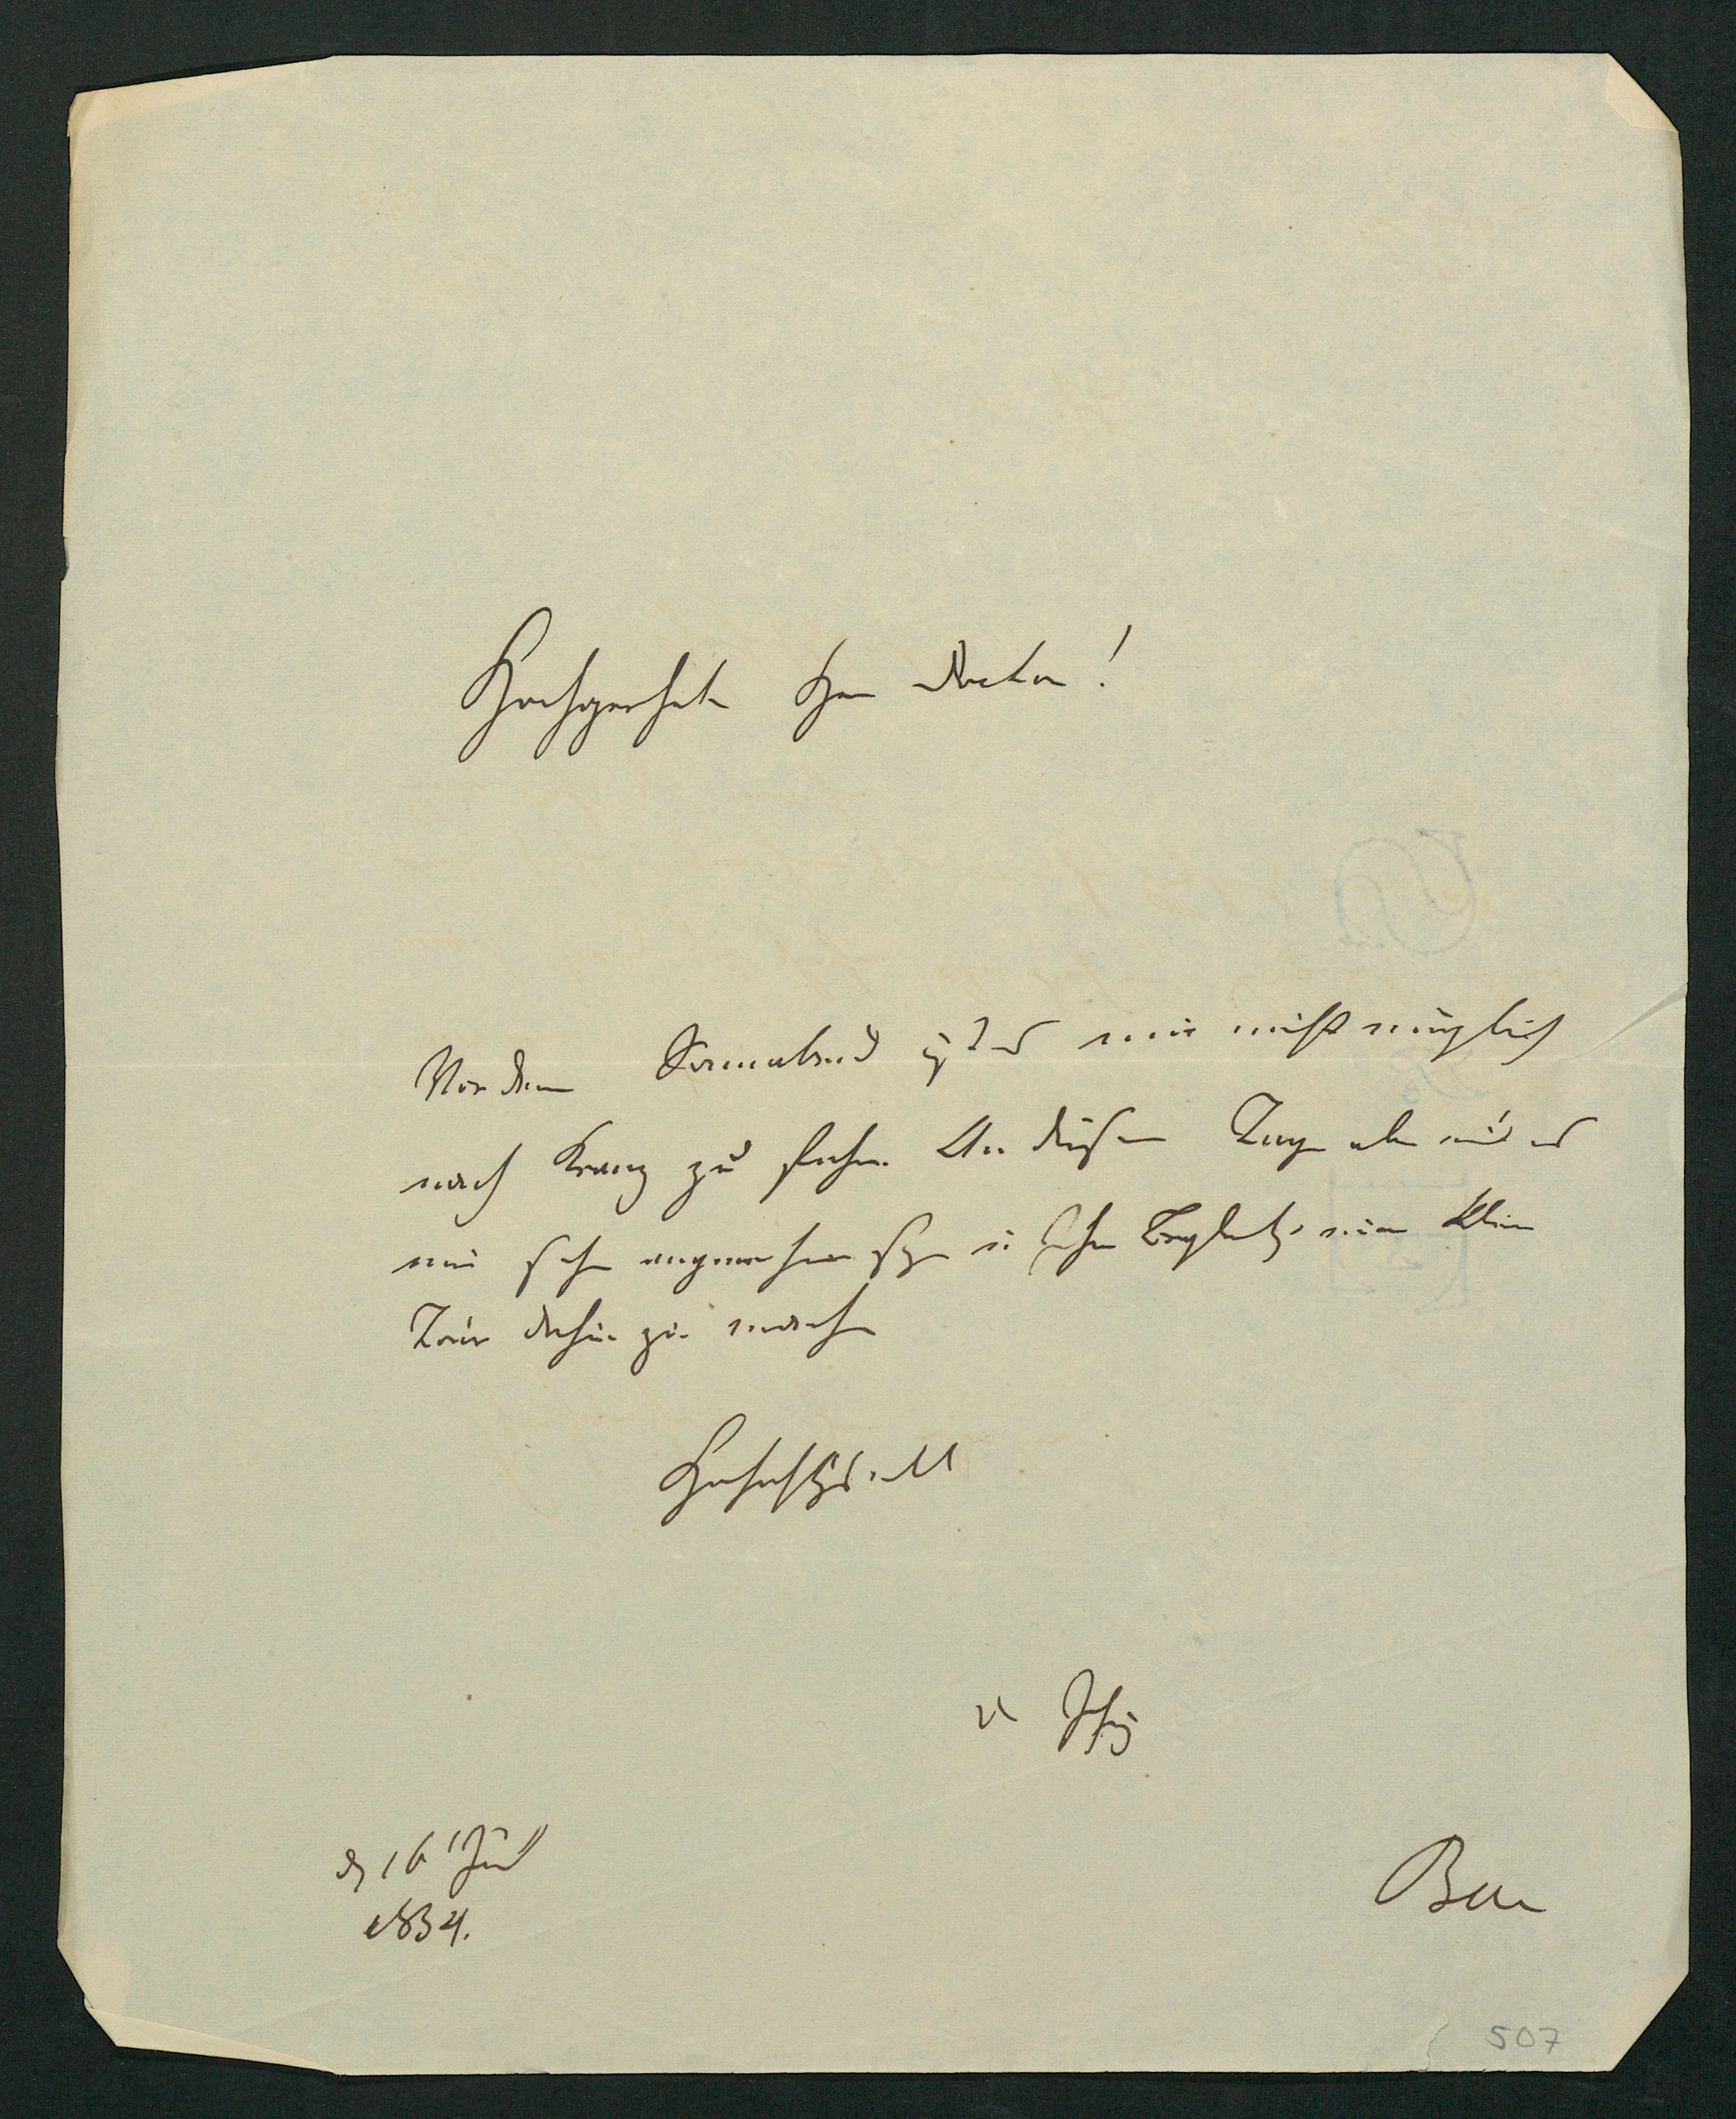 Hochgeehrter Herr Doctor!
Vor dem Sonnabend ist es mir nicht möglich
nach Kranz zu fahren. An diesem Tage aber wird es
mir sehr angenehm seyn in Ihrer Begleitung eine kleine
Tour dahin zu machen
Hochachtungsvoll
d 16 Jul
1834.
507